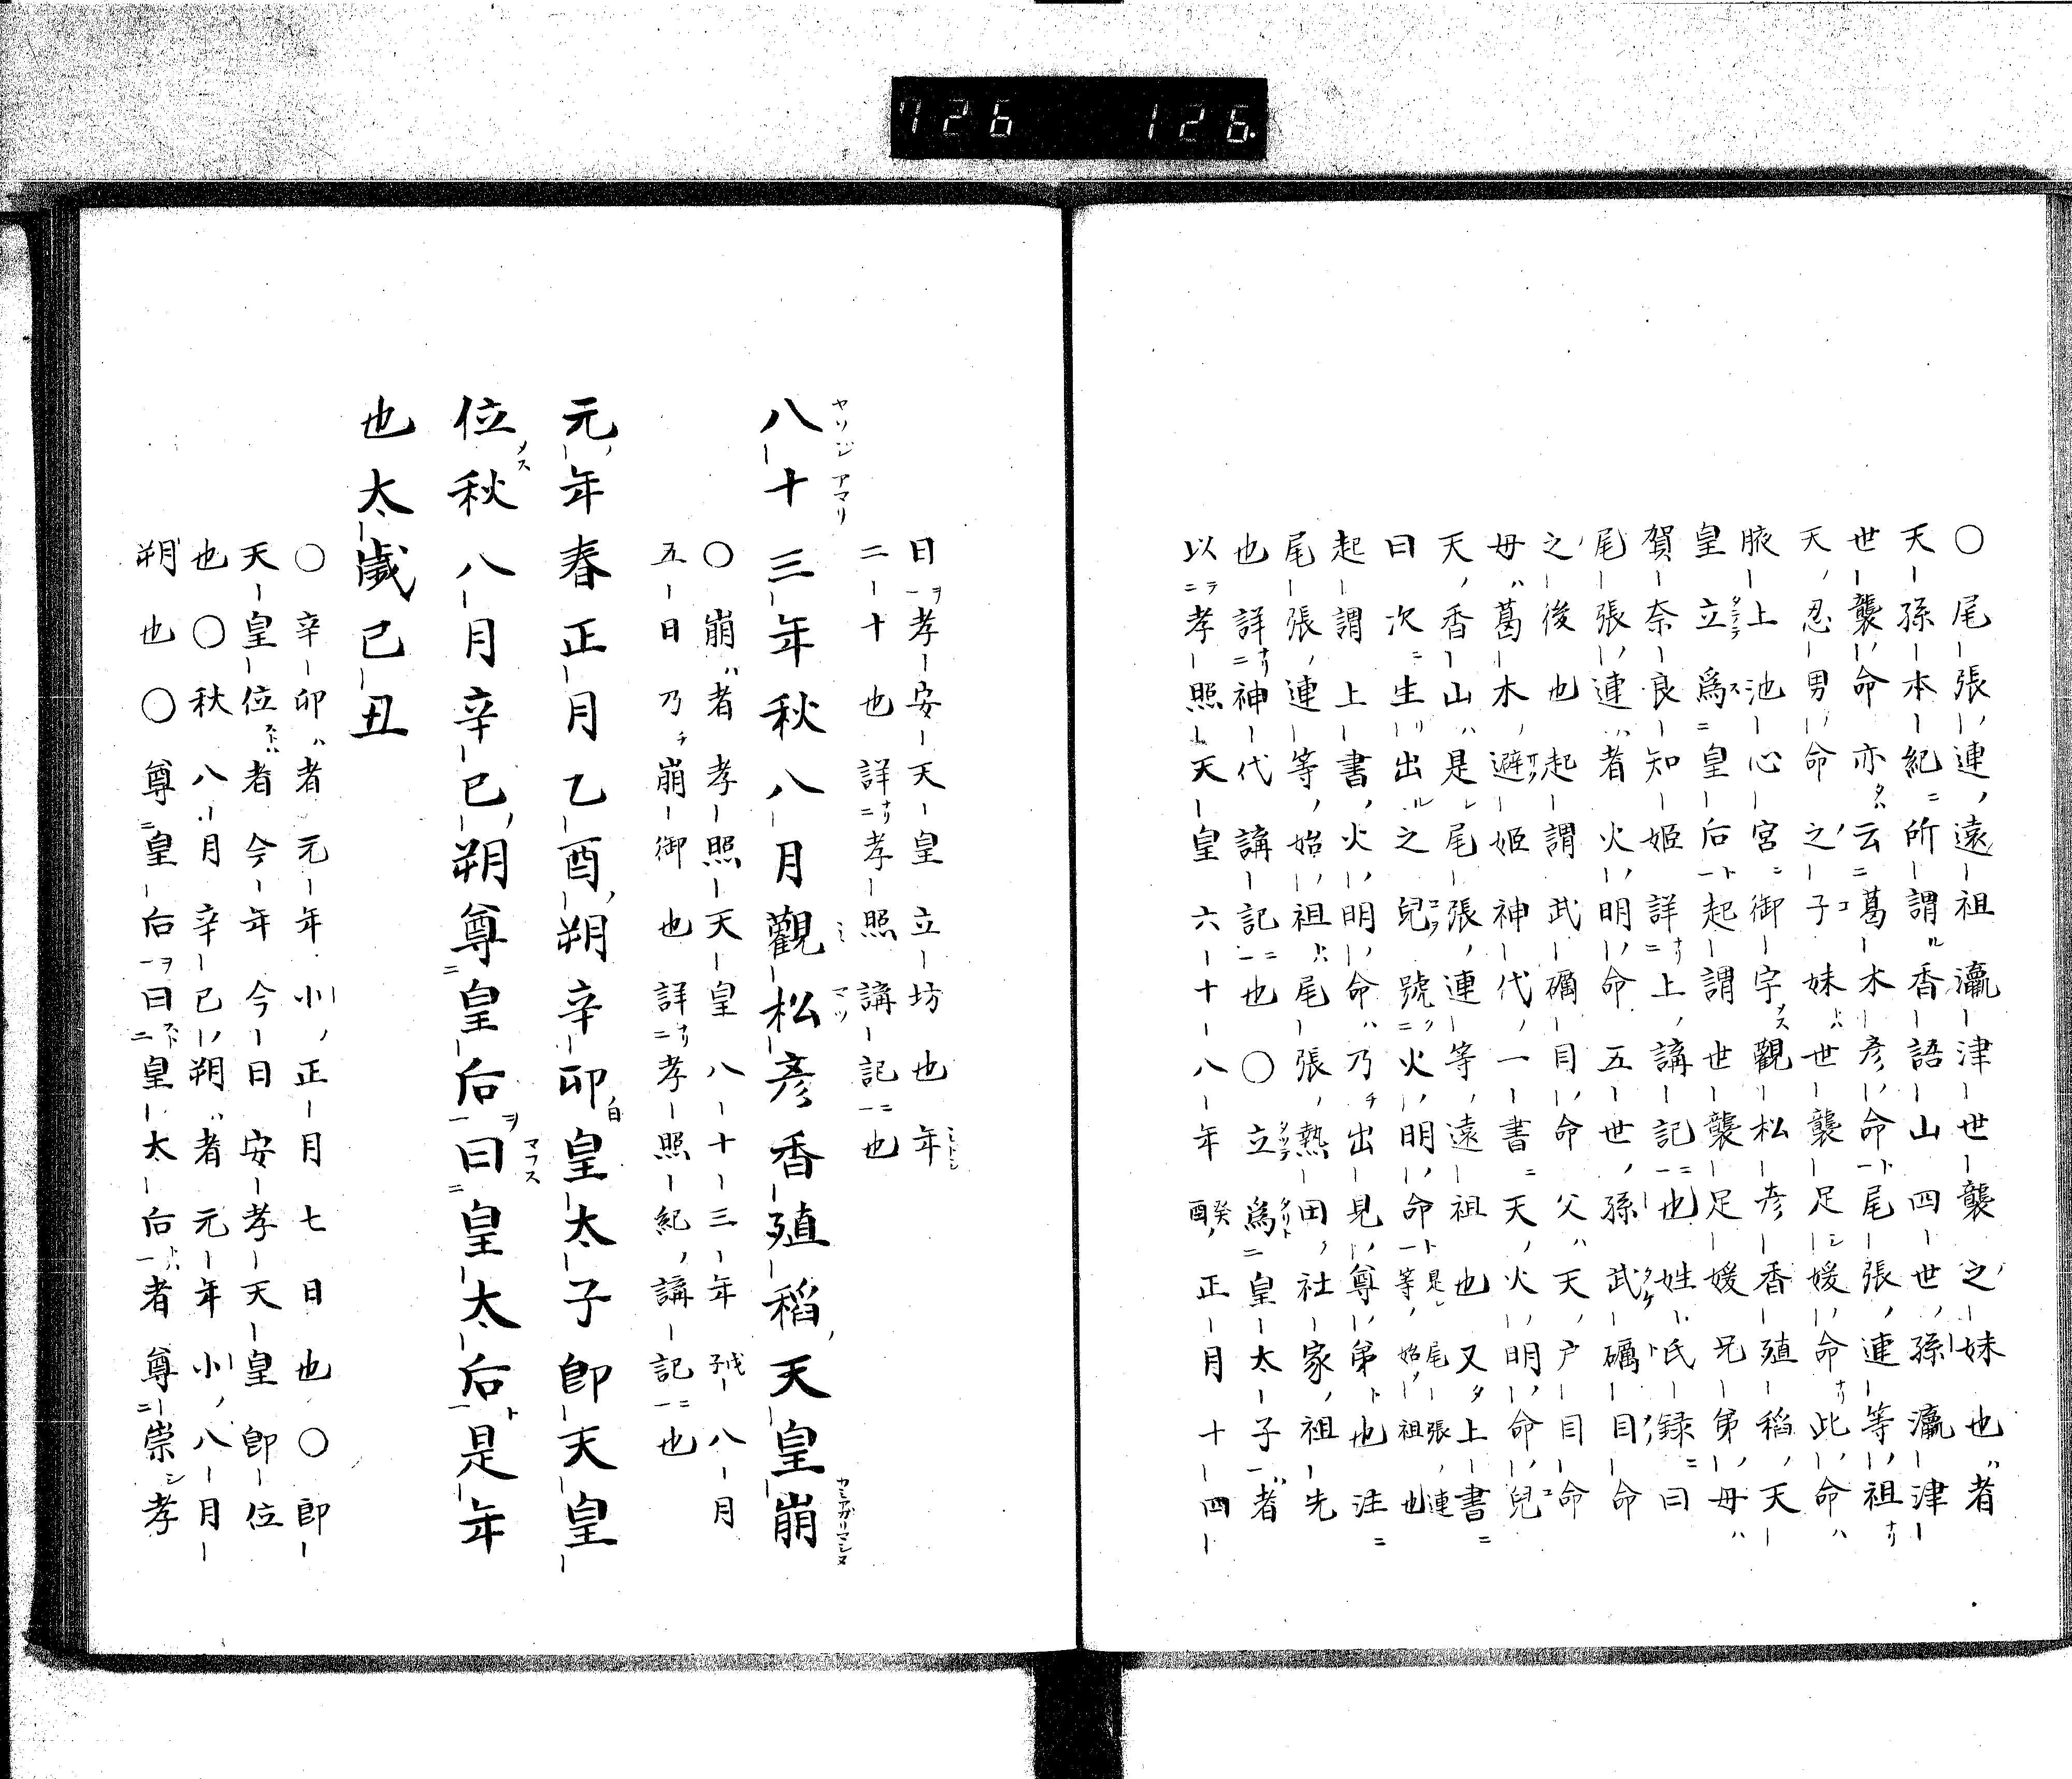 726 126.
○尾張連遠祖瀛津世襲之妹也者
天孫本紀所謂香語山四世孫瀛津
世襲命亦云葛木彦命尾張連等祖
天忍男命之子妹世襲足媛命此命
腋上池心宮御宇觀松彦香殖稻天
皇立爲皇后起謂世襲足媛兄弟母
賀奈良知姬詳上講記也姓氏録曰
尾張連者火明命五世孫武礪目命
之後也起謂武礪目命父天戸目命
母葛木避姬神代一書天火明命兒
天香山是尾張連等遠祖也又上書
曰次生出之兒號火明命是尾張連等始祖也
起謂上書火明命乃出見尊弟也注
尾張連等始祖尾張熱田社家祖先
也詳神代講記也○立爲皇太子者
以孝照天皇六十八年癸酉正月十四
日孝安天皇立坊也年
二十也詳孝照講記也
八十三年秋八月觀松彦香殖稻天皇崩
○崩者孝照天皇八十三年戊子八月
五日乃崩御也詳孝照紀講記也
元年春正月乙酉朔辛卯皇太子即天皇
位秋八月辛巳朔尊皇后曰皇太后是年
也太歲己丑
○辛卯者元年小正月七日也○即
天皇位者今年今日安孝天皇即位
也○秋八月辛巳朔者元年小八月
朔也○尊皇后曰皇太后者尊崇孝